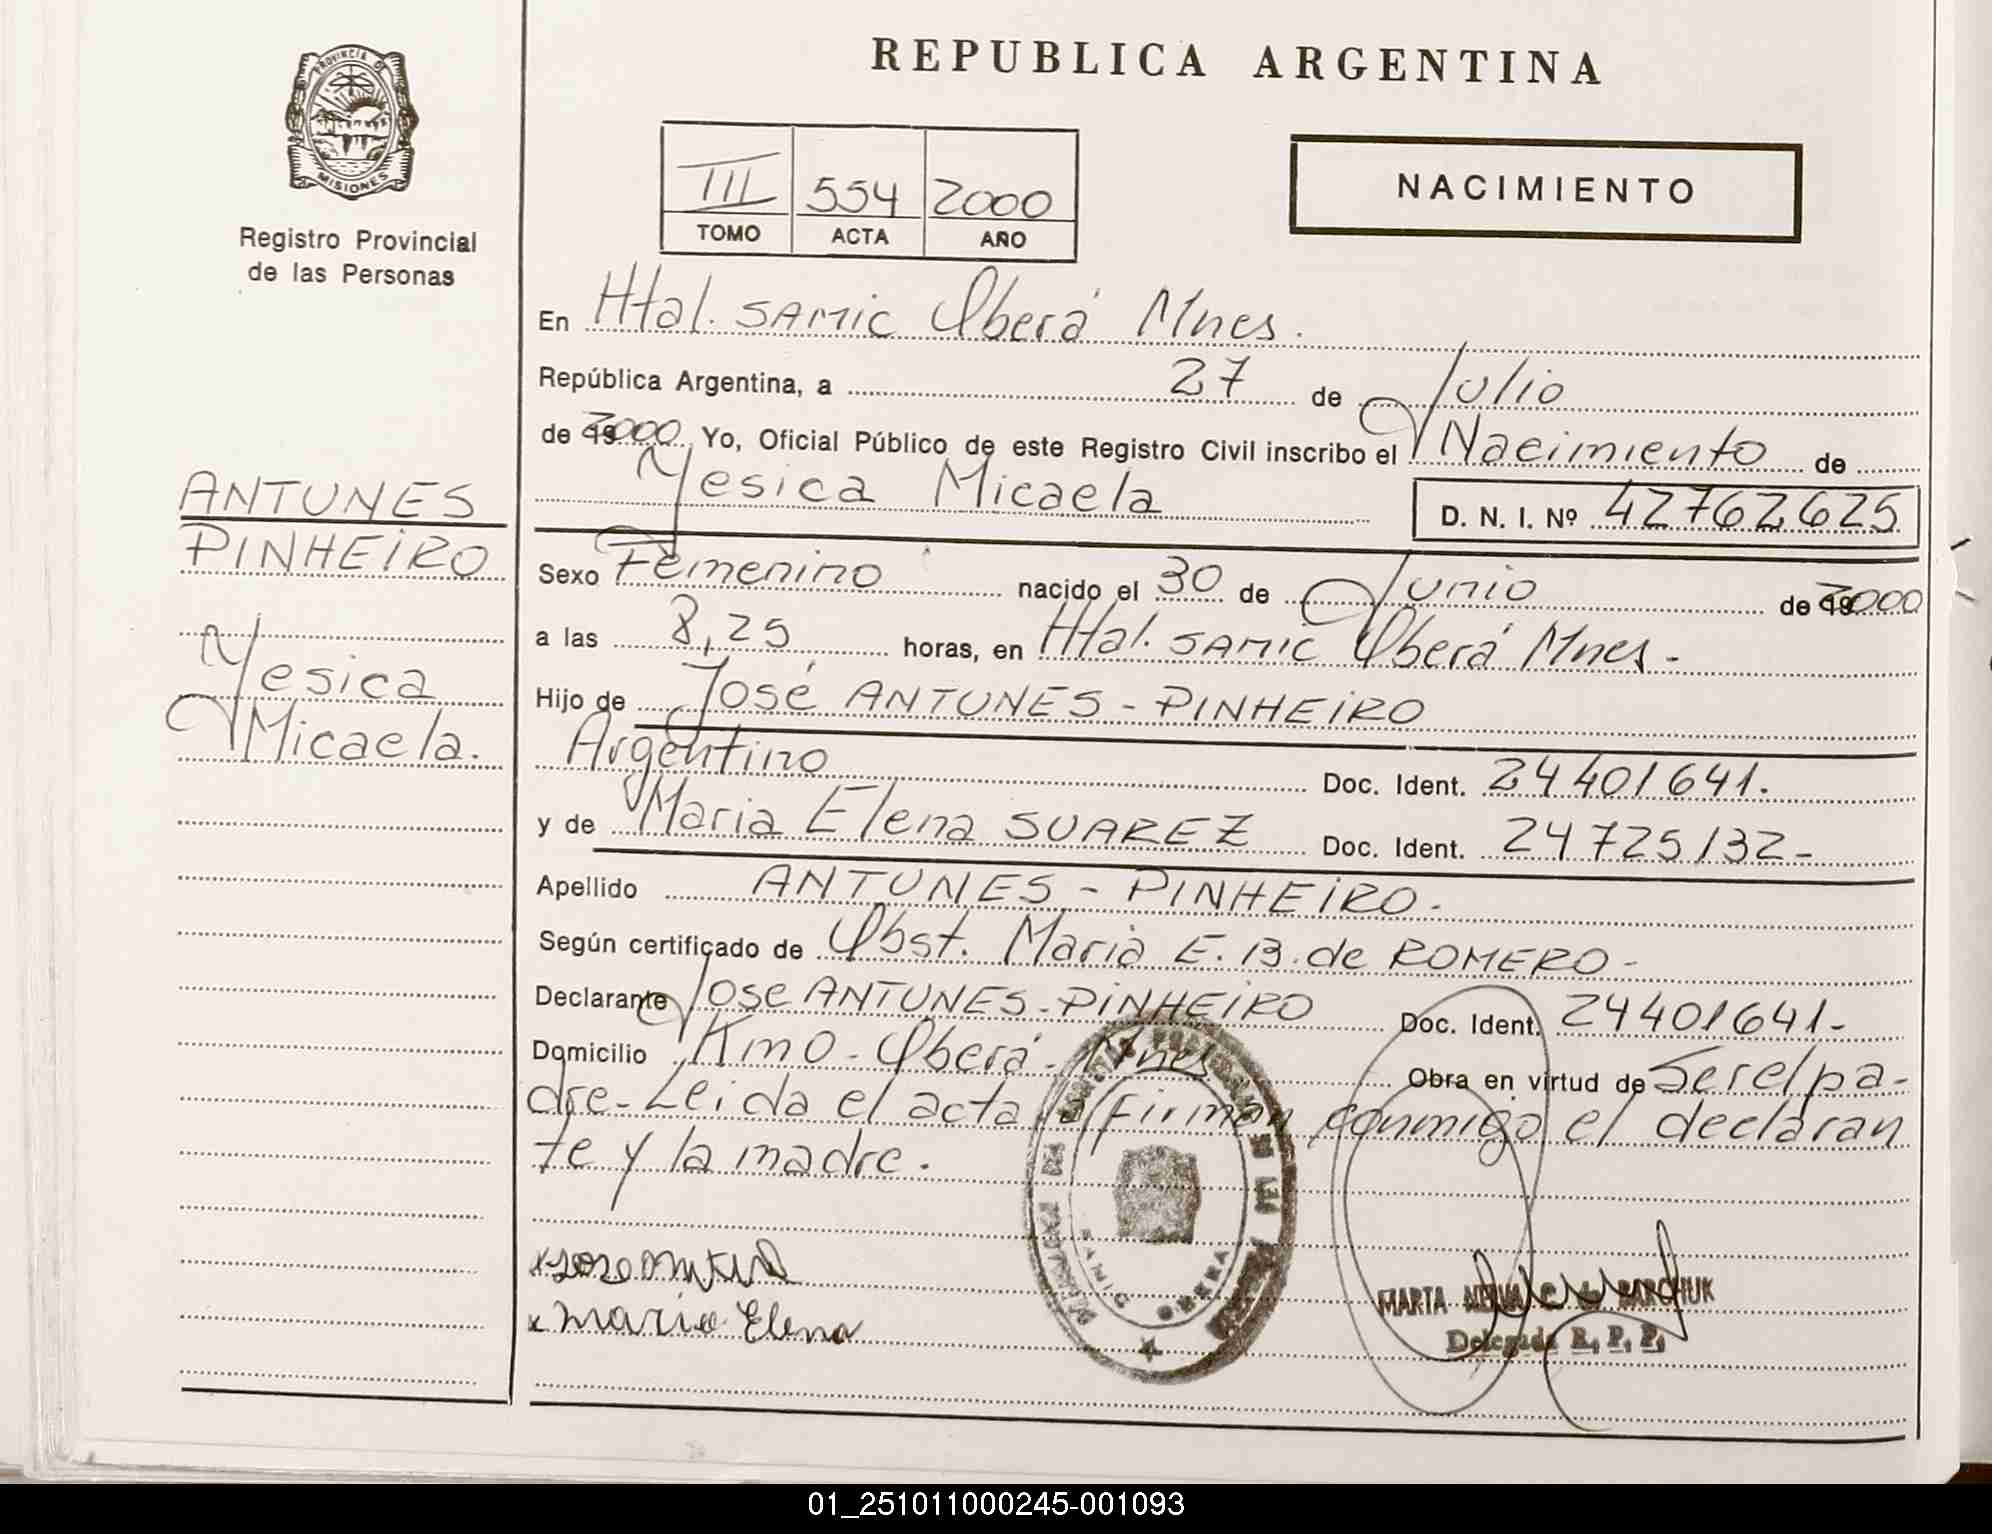 PROVINCIA DE
MISIONES
Registro Provincial
de las Personas
ANTUNES
PINHEIRO
Yesica
Micaela.
REPUBLICA ARGENTINA
III 554 2000
TOMO ACTA AÑO
NACIMIENTO
En Htal. SAMIC Oberá Mnes.
República Argentina, a 27 de Julio
de 2000 Yo, Oficial Público de este Registro Civil inscribo el Nacimiento de
Yesica Micaela D. N. I. Nº 42762625
Sexo Femenino nacido el 30 de Junio de 2000
a las 8,25 horas, en Htal. SAMIC Oberá Mnes-
Hijo de José ANTUNES - PINHEIRO
Argentino Doc. Ident. 24401641.
y de Maria Elena SUAREZ Doc. Ident. 24725132-
Apellido ANTUNES - PINHEIRO.
Según certificado de Obst. Maria E. B. de ROMERO-
Declarante Jose ANTUNES-PINHEIRO Doc. Ident. 24401641-
Domicilio Km 0 - Oberá - Mnes Obra en virtud de Ser el pa-
dre- Leida el acta firman conmigo el declaran
te y la madre.
x Maria Elena
MARTA
Delegada R. P. P.
SAMIC OBERA
01_251011000245-001093